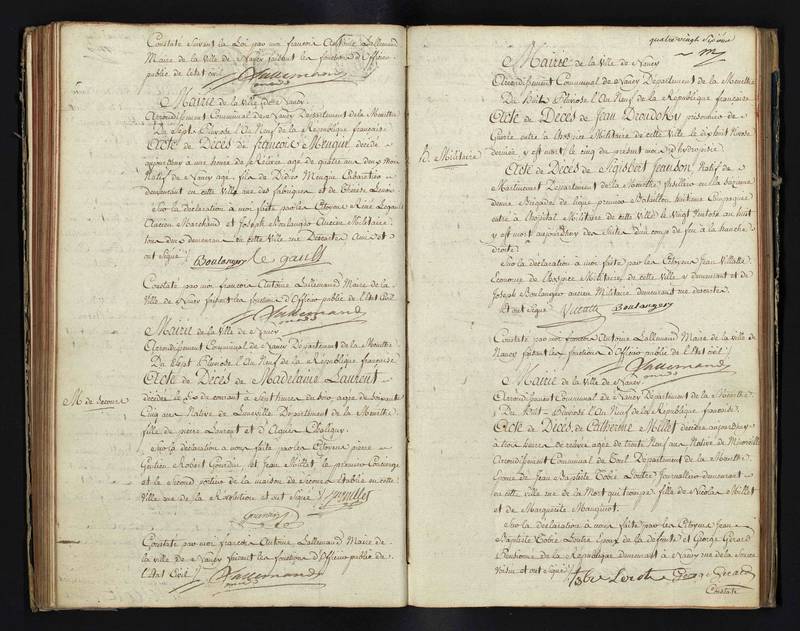 Constaté suivant la Loi par moi françois Antoine Lallemand
Maire de la Ville de Nancy faisant les fonctions d'Officier
public de l'état civil
Lallemand
Mairie de la Ville de Nancy
Arrondissement Communal de Nancy Departement de la Meurthe
Du Sept Pluviose l'An Neuf de la Republique française
Acte de Décès de françois Mengue décédé
aujourdhuy à une heure de Relevée agé de quatre ans deux mois
Natif de Nancy fils de Didier Mengue Cabaretier
demeurant en cette Ville rue des fabriques et de Thérèse
Sur la déclaration à moi faite par les Citoyens René Legault
Ancien Marchand et Joseph Boulanger Ancien Militaire
tous deux demeurant en cette Ville rue Descartes Amis et
ont Signé Boulanger le gault
Constaté par moi françois Antoine Lallemand Maire de la
Ville de Nancy faisant les fonctions d'Officier public de l'Etat Civil
Lallemand
Mairie de la Ville de Nancy
Arrondissement Communal de Nancy Departement de la Meurthe
Du Sept Pluviose l'An Neuf de la Republique française
Acte de Décès de Madelaine Laurent
M. de Secours
décédée le Six du courant à Sept heures du Soir, agée de Soixante
Cinq ans Native de Luneville Departement de la Meurthe
fille de pierre Laurent et d'Agnès Choligny
Sur la déclaration à moi faite par les Citoyens pierre
Robert et Jean Millet, le premier Concierge
et le Second portier de la maison de Secours Etablie en cette
Ville rue de la Révolution et ont Signé
Constaté par moi françois Antoine Lallemand Maire de
la ville de Nancy faisant les fonctions d'Officier public de
l'Etat Civil Lallemand
quatre vingt
Mairie de la Ville de Nancy
Arrondissement Communal de Nancy Departement de la Meurthe
Du Huit Pluviose l'An Neuf de la Republique française
Acte de Décès de Jean Droudohy prisonnier de
Guerre entré à l'hospice Militaire de cette Ville le dix huit Nivose
dernier, y est mort le cinq du present mois d'hydropisie
H. Militaire
Acte de Décès de Sigisbert Jeanson, Natif de
Martincourt Departement de la Meurthe, fusillier en la Seizieme
demie Brigade de ligne premier Bataillon huitieme Compagnie
entré à l'hopital Militaire de cette Ville le Vingt Ventose an huit
y est mort aujourdhuy des Suites d'un coup de feu à la hanche
droite
Sur la déclaration à moi faite par les Citoyens Jean Villatte
Econome de l'hospice Militaire de cette Ville y demeurant et de
Joseph Boulanger ancien Militaire demeurant rue descartes
Et ont Signé Villatte Boulanger
Constaté par moi françois Antoine Lallemand Maire de la ville de
Nancy faisant les fonctions d'Officier public de l'Etat civil
Lallemand
Mairie de la Ville de Nancy
Arrondissement Communal de Nancy Departement de la Meurthe
Du Huit Pluviose l'An Neuf de la Republique française
Acte de Décès de Catherine Millet décédée aujourdhuy
à trois heures de relevée agée de trente Neuf ans Native de
Arrondissement Communal de Toul Departement de la Meurthe
Epouse de Jean Baptiste Tobie Journallier demeurant
en cette ville rue de la Mort qui trompe, fille de Nicolas Millet
et de Marguerite Manginot
Sur la déclaration à moi faite par les Citoyens Jean
Baptiste Tobie Epoux de la defunte et George Gerard
Pensionné de la Republique demeurant à Nancy rue de la Source
Voisin et ont Signé
Constaté